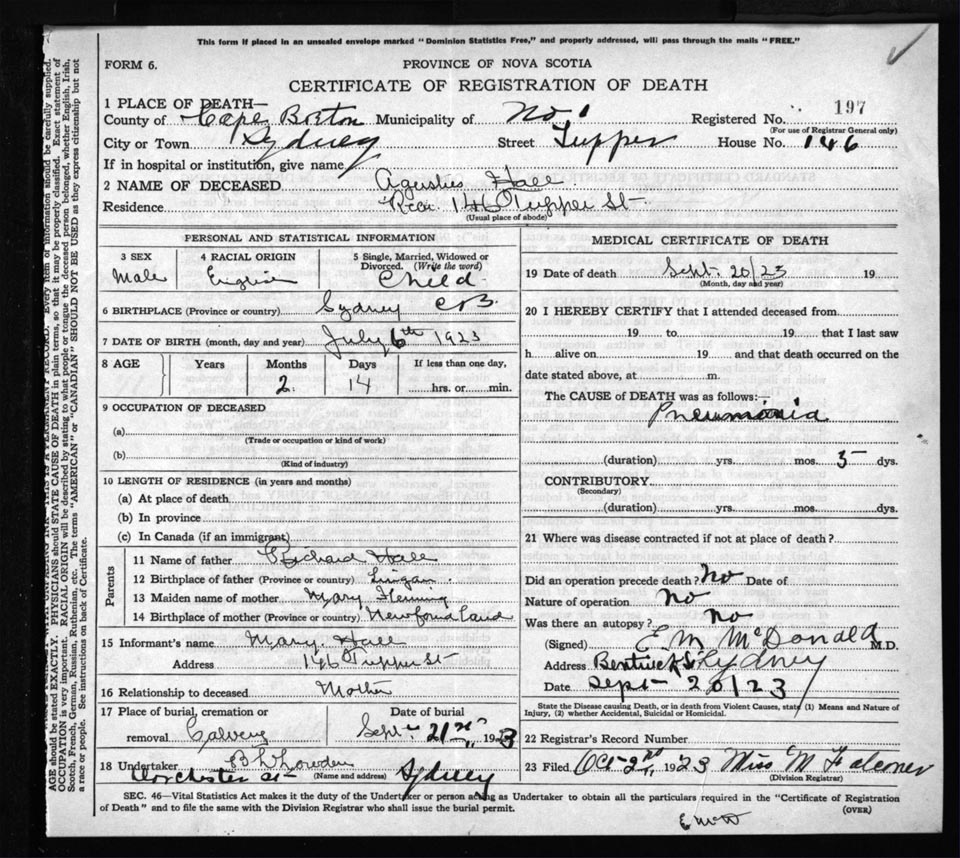 This form if placed in an unsealed envelope marked "Dominion Statistics Free," and properly addressed, will pass through the mails "FREE."
FORM 6.
PROVINCE OF NOVA SCOTIA
CERTIFICATE OF REGISTRATION OF DEATH
1 PLACE OF DEATH—
County of Cape Breton Municipality of No 1 Registered No. 197
(For use of Registrar General only)
City or Town Sydney Street Tupper House No. 146
If in hospital or institution, give name
2 NAME OF DECEASED Hall
Residence 146 Tupper St
(Usual place of abode)
PERSONAL AND STATISTICAL INFORMATION
3 SEX Male
4 RACIAL ORIGIN English
5 Single, Married, Widowed or Divorced. (Write the word) Child
6 BIRTHPLACE (Province or country) Sydney C B.
7 DATE OF BIRTH (month, day and year) July 6th 1923
8 AGE Years Months Days If less than one day,
2 14 hrs. or min.
9 OCCUPATION OF DECEASED
(a)
(Trade or occupation or kind of work)
(b)
(Kind of industry)
10 LENGTH OF RESIDENCE (in years and months)
(a) At place of death
(b) In province
(c) In Canada (if an immigrant)
Parents
11 Name of father Richard Hall
12 Birthplace of father (Province or country) Lingan
13 Maiden name of mother Mary Fleming
14 Birthplace of mother (Province or country) Newfoundland
15 Informant's name Mary Hall
Address 146 Tupper St
16 Relationship to deceased Mother
17 Place of burial, cremation or removal Calvery
Date of burial Sept 21 1923
18 Undertaker
Dorchester St (Name and address) Sydney
MEDICAL CERTIFICATE OF DEATH
19 Date of death Sept. 20/23 19
(Month, day and year)
20 I HEREBY CERTIFY that I attended deceased from
19 to 19 that I last saw
h alive on 19 and that death occurred on the
date stated above, at m.
The CAUSE OF DEATH was as follows:—
Pneumonia
(duration) yrs. mos. 5 dys.
CONTRIBUTORY
(Secondary)
(duration) yrs. mos. dys.
21 Where was disease contracted if not at place of death?
Did an operation precede death? No Date of
Nature of operation No
Was there an autopsy? No
(Signed) E M McDonald M.D.
Address Bentinck St Sydney
Date Sept 20/23
State the Disease causing Death, or in death from Violent Causes, state (1) Means and Nature of
Injury, (2) whether Accidental, Suicidal or Homicidal.
22 Registrar's Record Number
23 Filed Oct 2nd, 1923 Miss M Falconer
(Division Registrar)
SEC. 46—Vital Statistics Act makes it the duty of the Undertaker or person acting as Undertaker to obtain all the particulars required in the "Certificate of Registration
of Death" and to file the same with the Division Registrar who shall issue the burial permit.
(OVER)
AGE should be stated EXACTLY. PHYSICIANS should STATE CAUSE OF DEATH in plain terms, so that it may be properly classified. Exact statement of
OCCUPATION is very important. RACIAL ORIGIN will be described by stating to what people or tongue the deceased person belonged, whether English, Irish,
Scotch, French, German, Russian, Ruthenian, etc. The terms "AMERICAN" or "CANADIAN" SHOULD NOT BE USED as they express citizenship but not
a race or people. See instructions on back of Certificate.